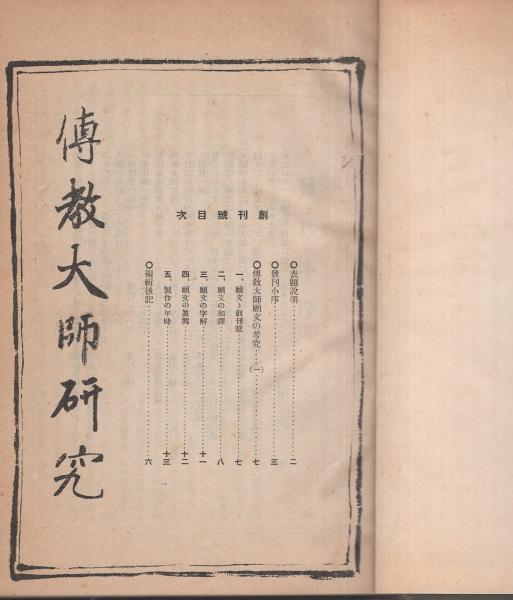 創刊號目次
〇表題說明……二
〇發刊小序……三
〇傳教大師願文の考究……(一)……七
一、願文と創刊號……七
二、願文の和譯……八
三、願文の字解……十一
四、願文の眞僞……十二
五、製作の年時……十三
〇編輯後記……六
傳教大師研究